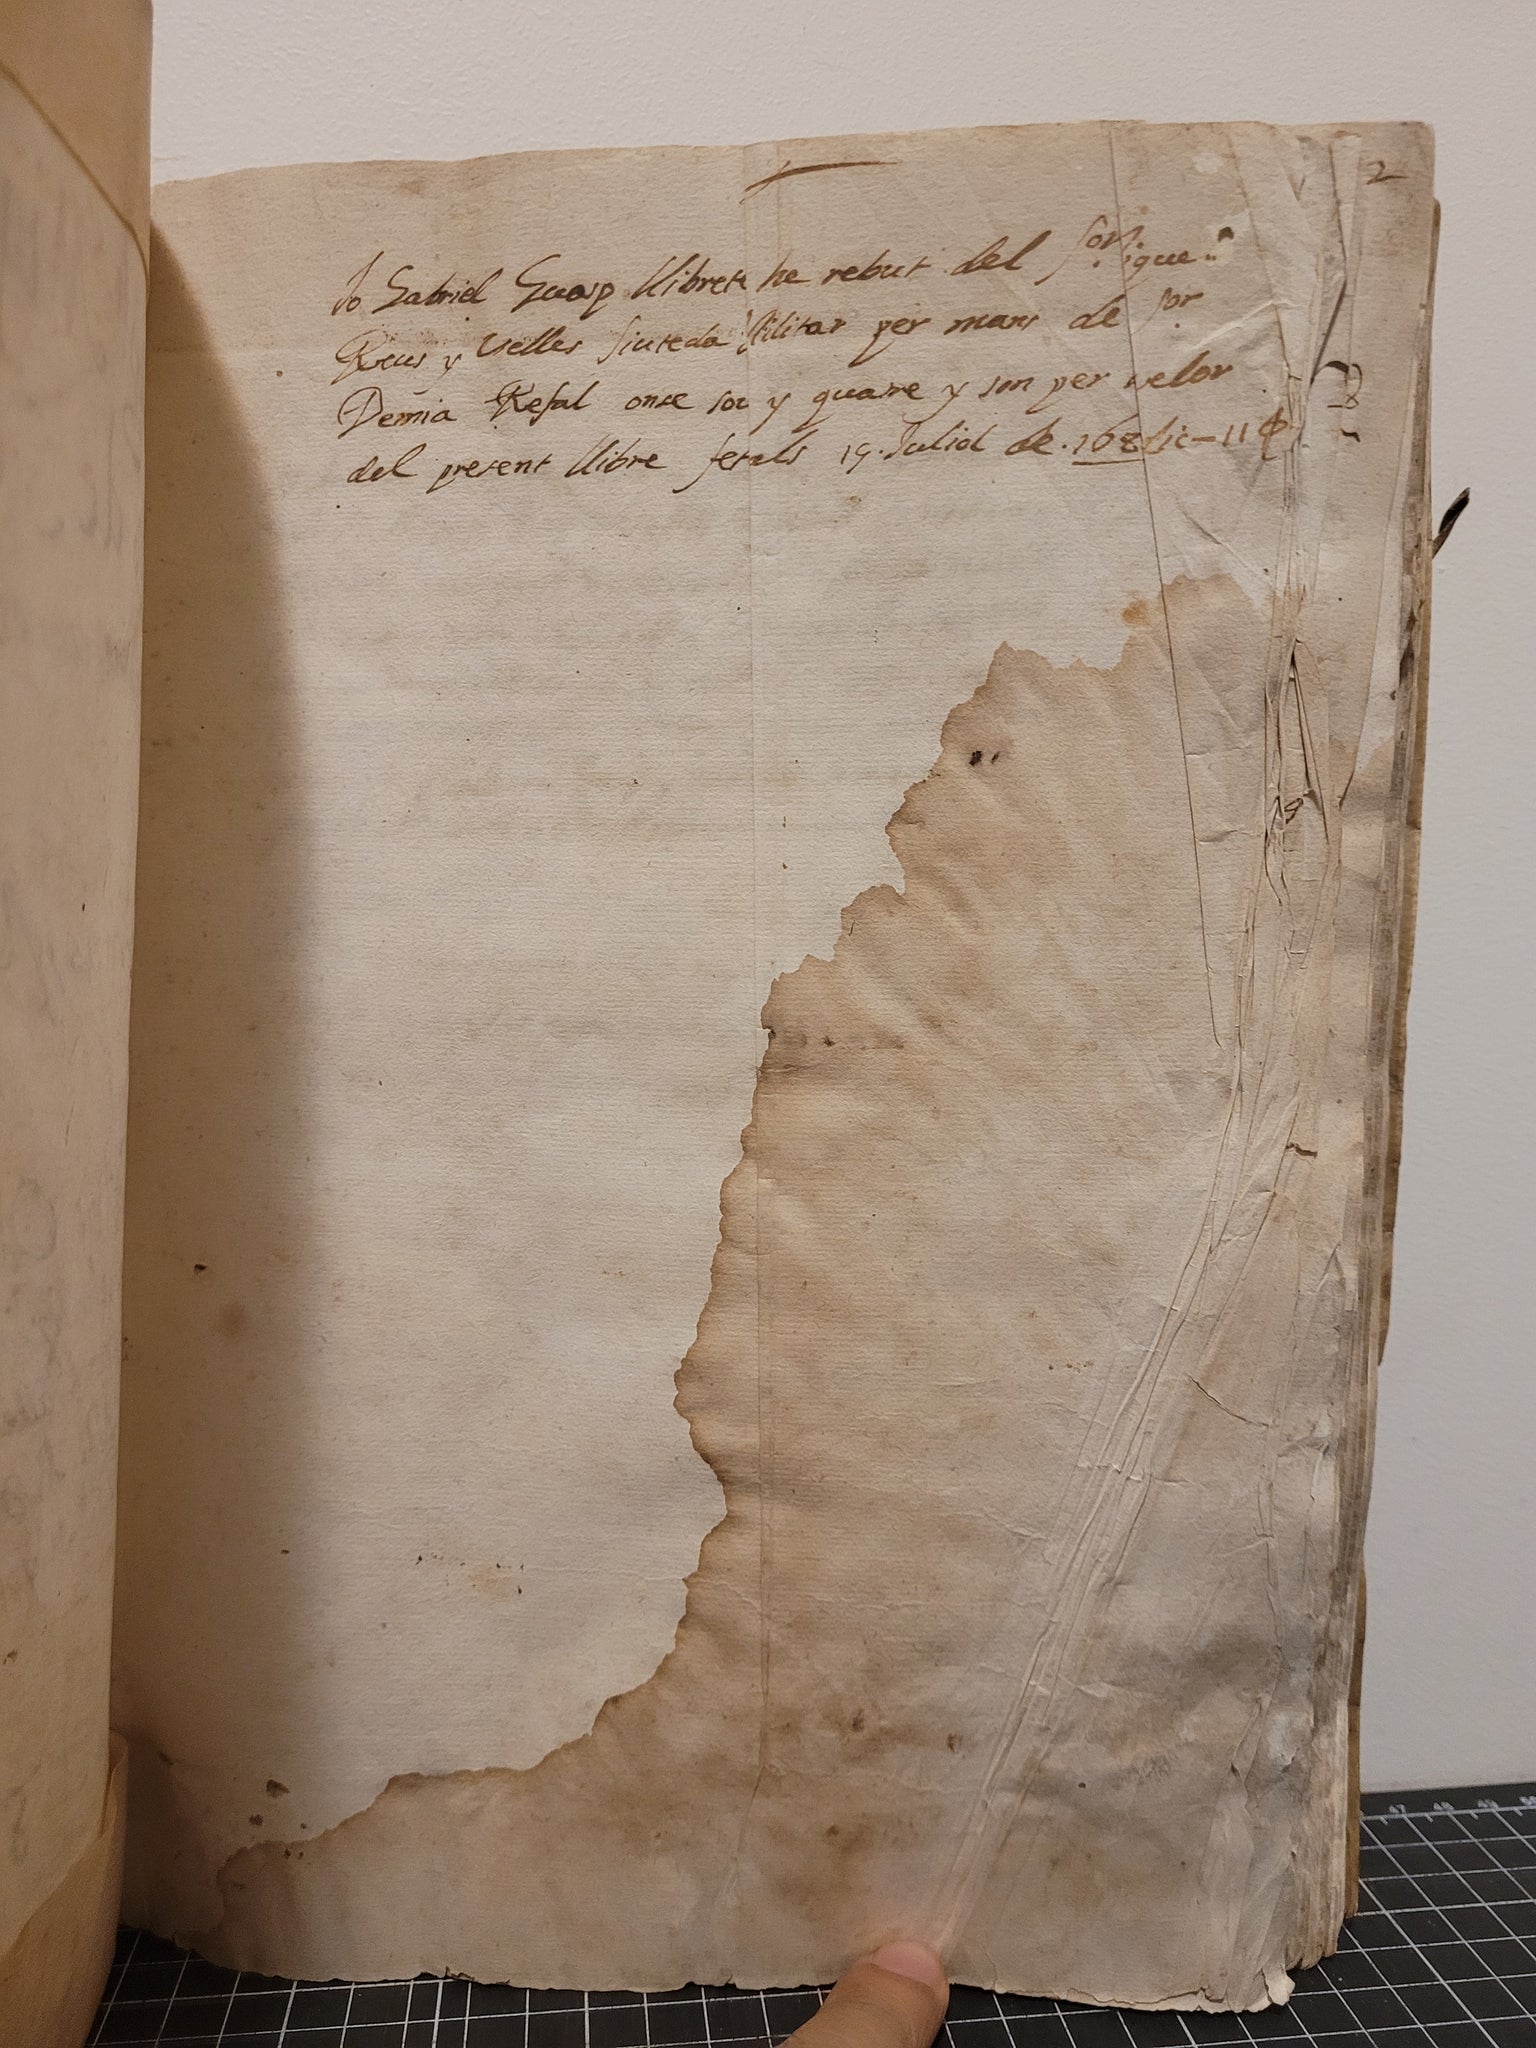 2
Jo Gabriel Guasp llibrete he rebut del sor
Reus y Uelles siuteda Militar per mans de sor
Demia Refal onse sou y quatre y son per velor
del present llibre fet als 19. Juliol de